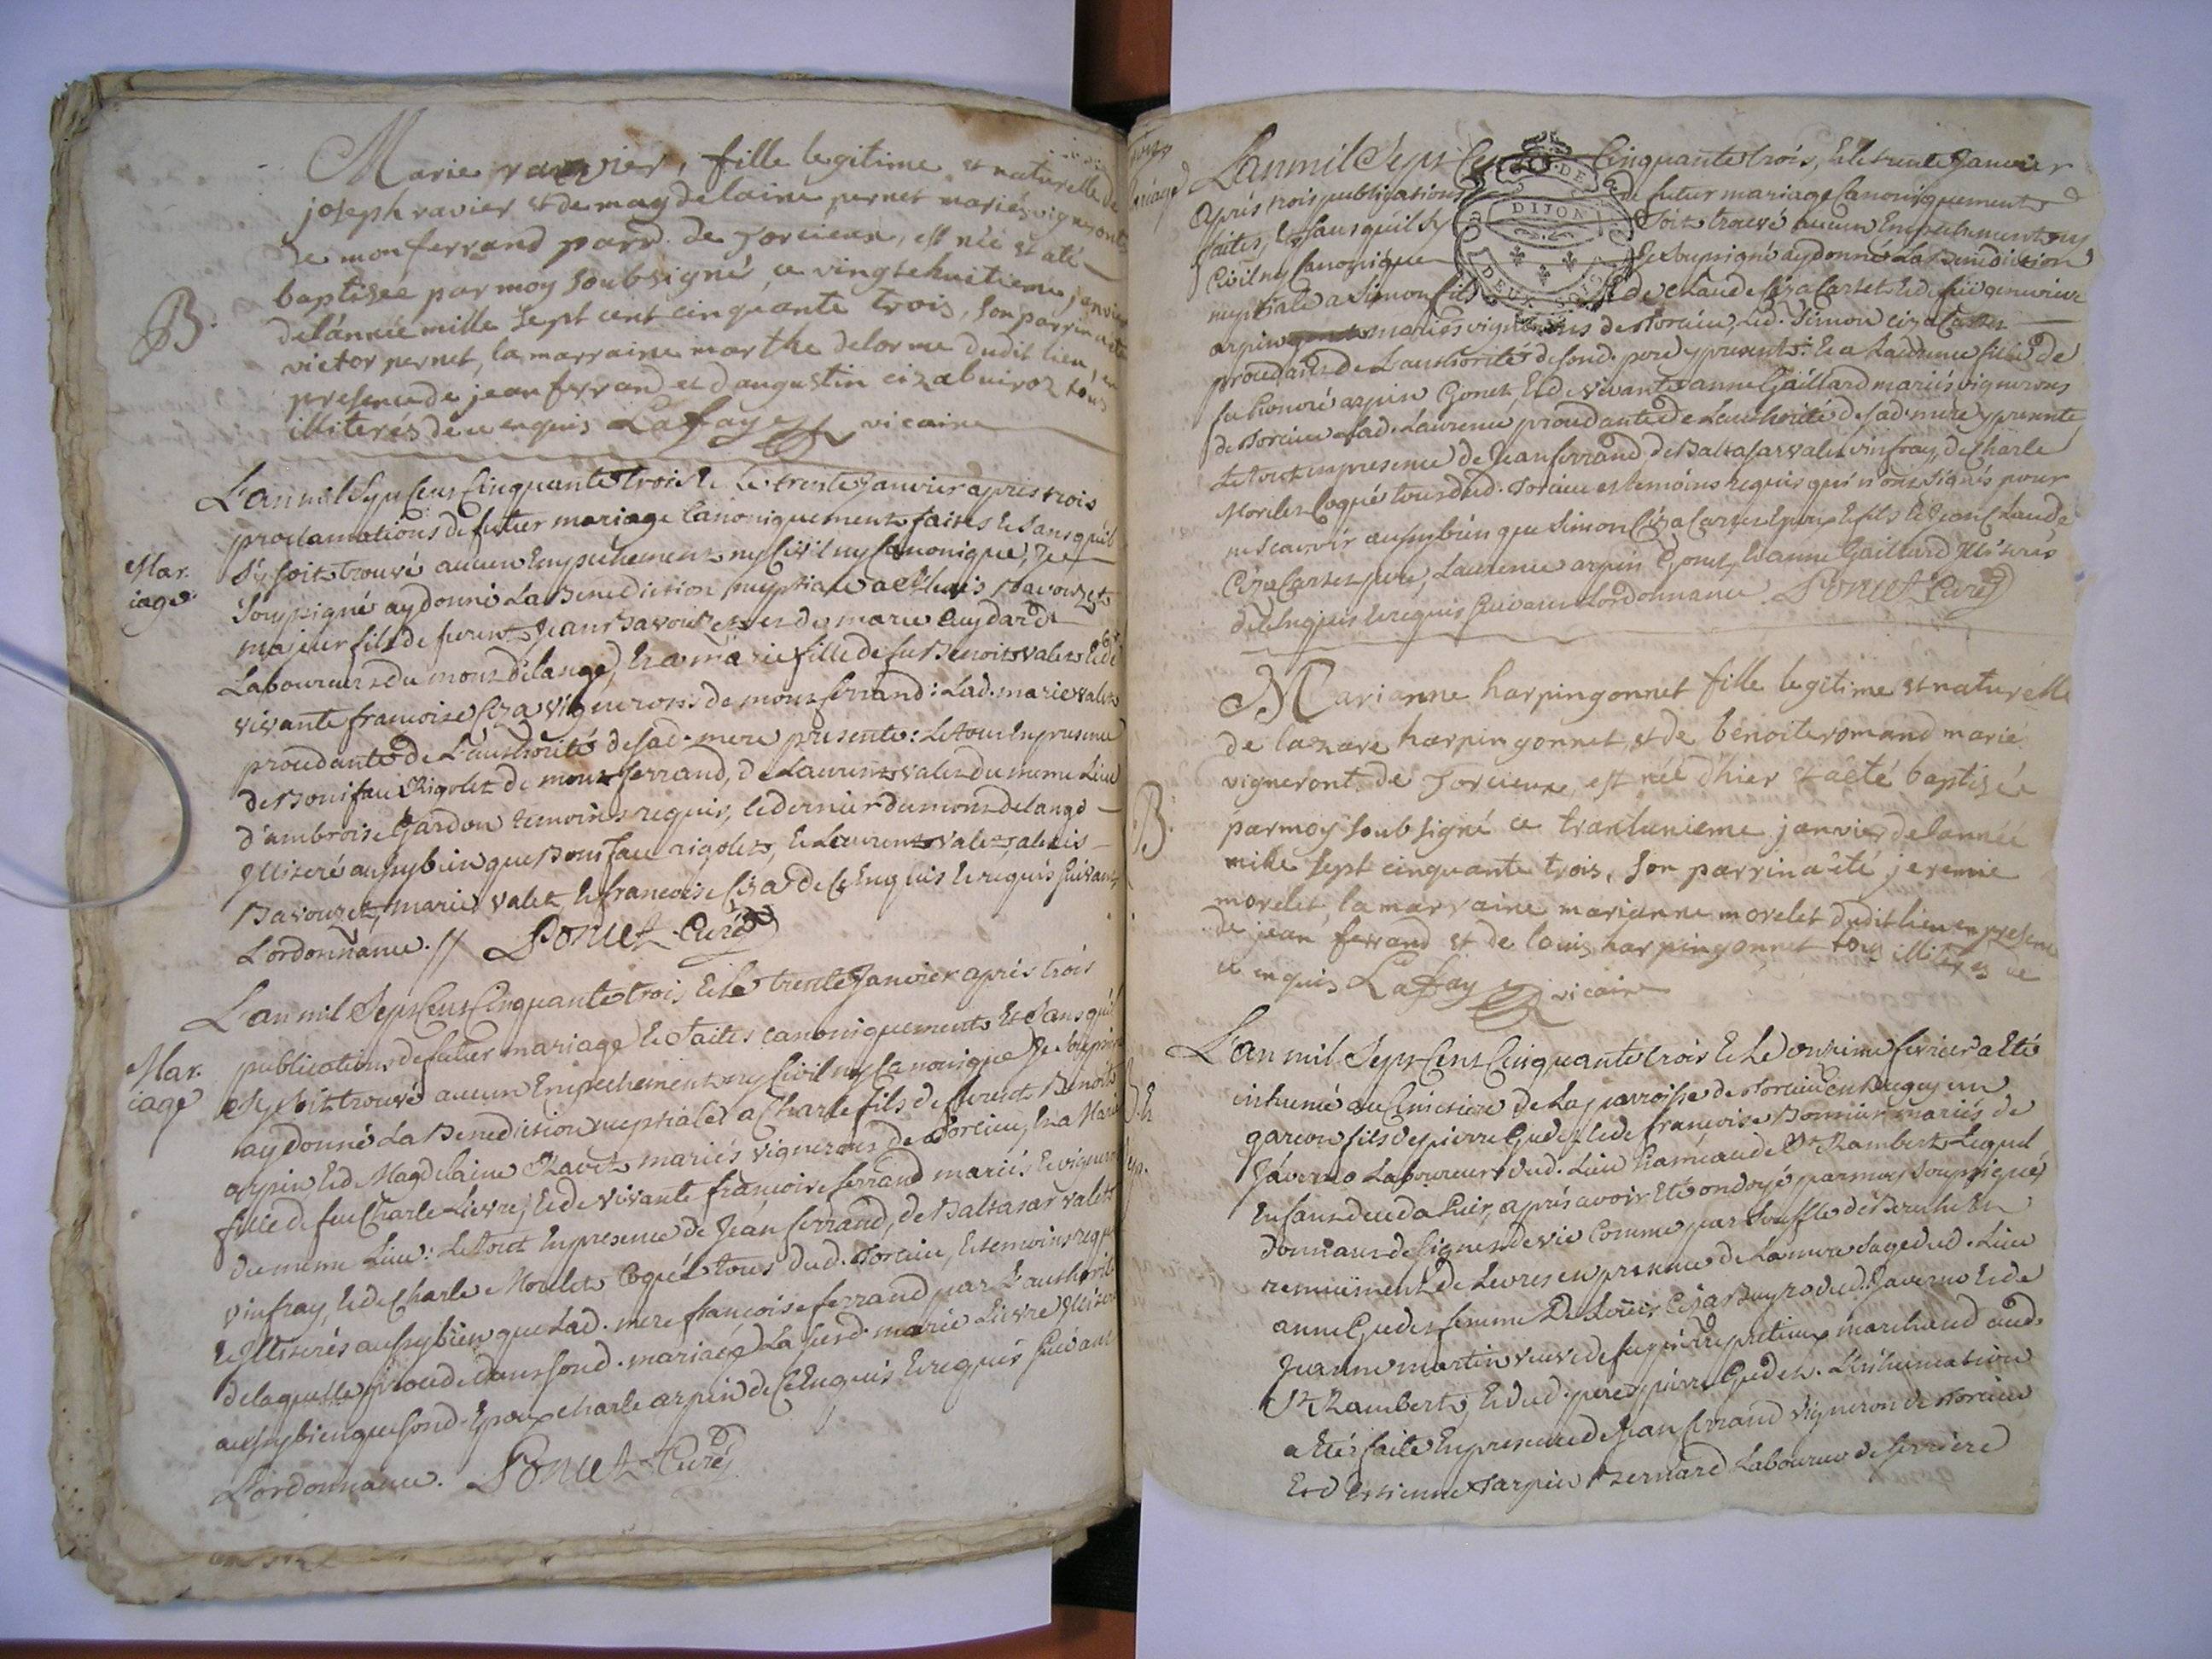 Marie ravier, fille legitime et naturelle de
joseph ravier et de magdelaine pernet mariés vignerons
de monferrand parr. de Torcieux, est née et a été
baptisée par moy soubsigné, ce vingt huitieme janvier
de l'année mille sept cent cinquante trois, son parrin a été
victor pernet, la marraine marthe delorme dudit lieu, en
presence de jean ferrand et d'augustin ciza buiroz tous
illiterés de ce enquis Lafay vicaire
B.
L'an mil Sept Cens Cinquante trois Et Le trente Janvier apres trois
proclamations de futur mariage Canoniquement faites et sans quil
sy soit trouvé aucun Empechement ny Civil ny Canonique, Je
Soussigné ay donné La Benediction nuptiale a Alexis Bavouzet
majeur fils de furent Jean Bavouzet et de marie Aydard
Laboureurs du mont de lange, Et a marie fille de fu Benoit valet Et de
vivante francoise Ciza vignerons de mont ferrand: Lad. marie valet
procedante de L'authorité de sad. mere presente: Le tout En presence
de Boniface Rigolet de mont ferrand, de Laurent valet du meme Lieu
d'ambroise Gardon temoins requis, le dernier du mont de lange
Illiteré aussy bien que Boniface rigolet, Et Laurent valet, alexis
Bavouzet, marie valet, et francoise Ciza de ce Enquis Et requis suivant
L'ordonnance. // Poncet Curé
Mar.
iage.
L'an mil Sept Cens Cinquante trois Et le trente Janvier après trois
publications de futur mariage Et faites canoniquement Et sans quil
sy soit trouvé aucun Empechement ny Civil ny Canonique Je soussigné
ay donné La Benediction nuptiale a Charle fils de furent Benoit
arpin Et de Magdelaine Ravet mariés vignerons de Torcieu, Et a Marie
fille de feu Charle Lievre, Et de vivante francoise ferrand mariés Et vignerons
du meme Lieu: Le tout En presence de Jean ferrand, de Baltasar valet
vinfray, Et de Charle Morelet Coqué tous dud. Torcieu, Et temoins requis
Et Illiterés aussy bien que Lad. mere francoise ferrand par L'authorité
de laquelle procede dans sond. mariage La susd. marie Lievre Illiterée
aussy bien que sond. Epoux charle arpin de ce Enquis Et requis suivant
L'ordonnance. Poncet Curé
Mar.
iage
L'an mil Sept Cens Cinquante trois, Et le trente Janvier
après trois publications de futur mariage Canoniquement
faites, Et sans quil sy soit trouvé aucun Empechement ny
Civil ny Canonique Je Soussigné ay donné La Benediction
nuptiale a Simon fils de Claude Ciza Carset Et de
arpin mariés vignerons de Torcieu, Led. Simon ciza Carset
procedant de L'authorité de sond. pere y present: Et a Laurence fille de
fu Honoré arpin Gonet Et de vivante anne Gaillard mariés vignerons
de Torcieu Lad. Laurence procedante de L'authorité de sad. mere y presente
Le tout en presence de Jean ferrand de Baltasar valet vinfray, de Charle
Morelet Coqué tous dud. Torcieu et temoins requis qui n'ont signés pour
ne scavoir aussy bien que Simon Ciza Carset Epoux Et fils Et Claude
Ciza Carset pere, Laurence arpin Gonet, Et anne Gaillard Illiterés
de ce Enquis Et requis suivant L'ordonnance. Poncet Curé
GEN. DE
DIJON
DEUX SOLS
Marianne harpingonnet fille legitime et naturelle
de lazare harpingonnet et de benoite romand mariés
vigneront de Torcieux est née d'hier et a été baptisée
par moy soubsigné ce trantunieme janvier de l'année
mille sept cinquante trois, son parrin a été jeremie
morelet, la marraine marianne morelet dudit lieu en presence
de jean ferrand et de louis harpingonnet tous illiterés de
ce enquis Lafay vicaire
B.
L'an mil Sept Cens Cinquante trois Et Le onzieme fevrier a Eté
inhumé au Cimetiere de La parroisse de Torcieu en Bugey un
garcon fils de pierre Gudet Et de francoise Bonnier mariés de
Javerno Laboureurs dud. Lieu hameau de St. Rambert Lequel
Enfant deceda hier, après avoir Eté ondoyé par moy soussigné
donnant de signes de vie Comme par souffle de Bouche En
remuement de Levres en presence de Lamere sage dud. Lieu
anne Gudet femme De Louis Ciza Buyro dud. Javerno Et de
Jeanne martin veuve de fu pierre marchand aud.
St. Rambert, Et dud. pere pierre Gudet. L'inhumation
a Eté faite En presence de Jean ferrand vigneron de Torcieu
Et d'Estienne Tarpin Bernard Laboureur de serriere